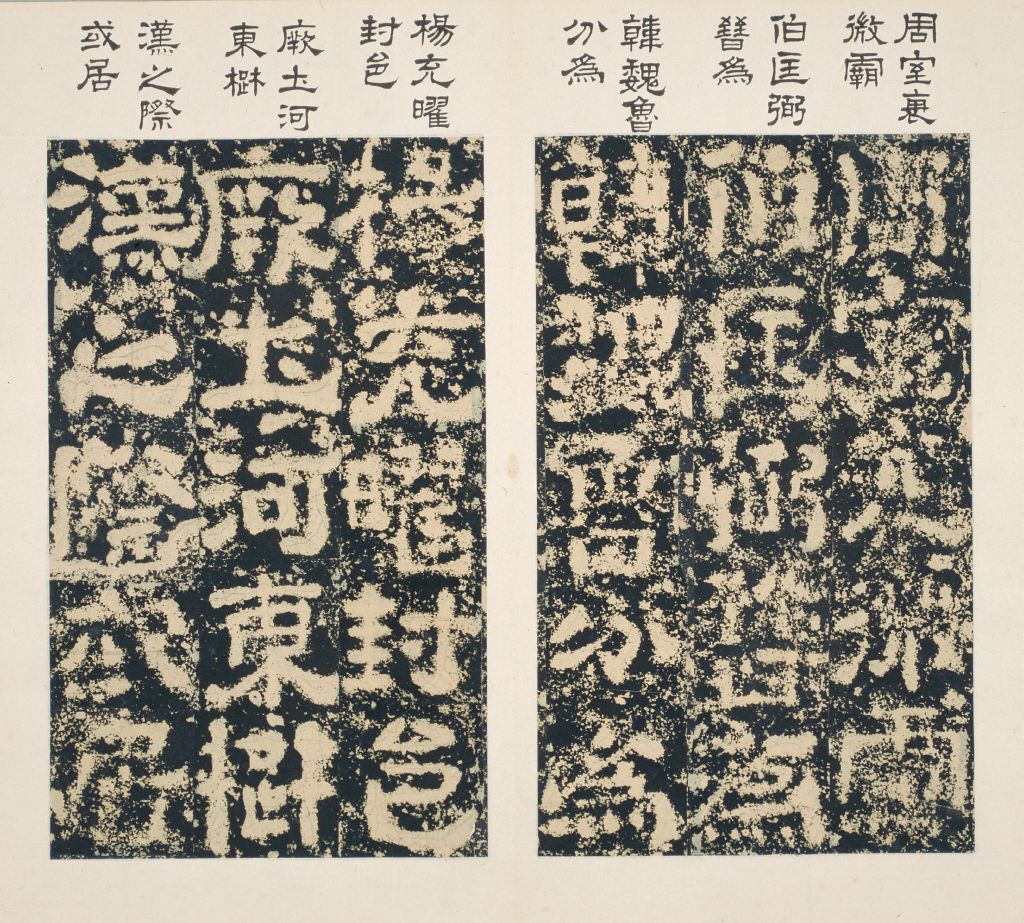 周室衰
微霸
伯匡弼
晉爲
韓魏魯
分爲
楊充曜
封邑
厥土河
東
漢之際
或居
周室衰微霸
伯匡弼晉爲
韓魏魯分爲
楊充曜封邑
厥土河東
漢之際或居